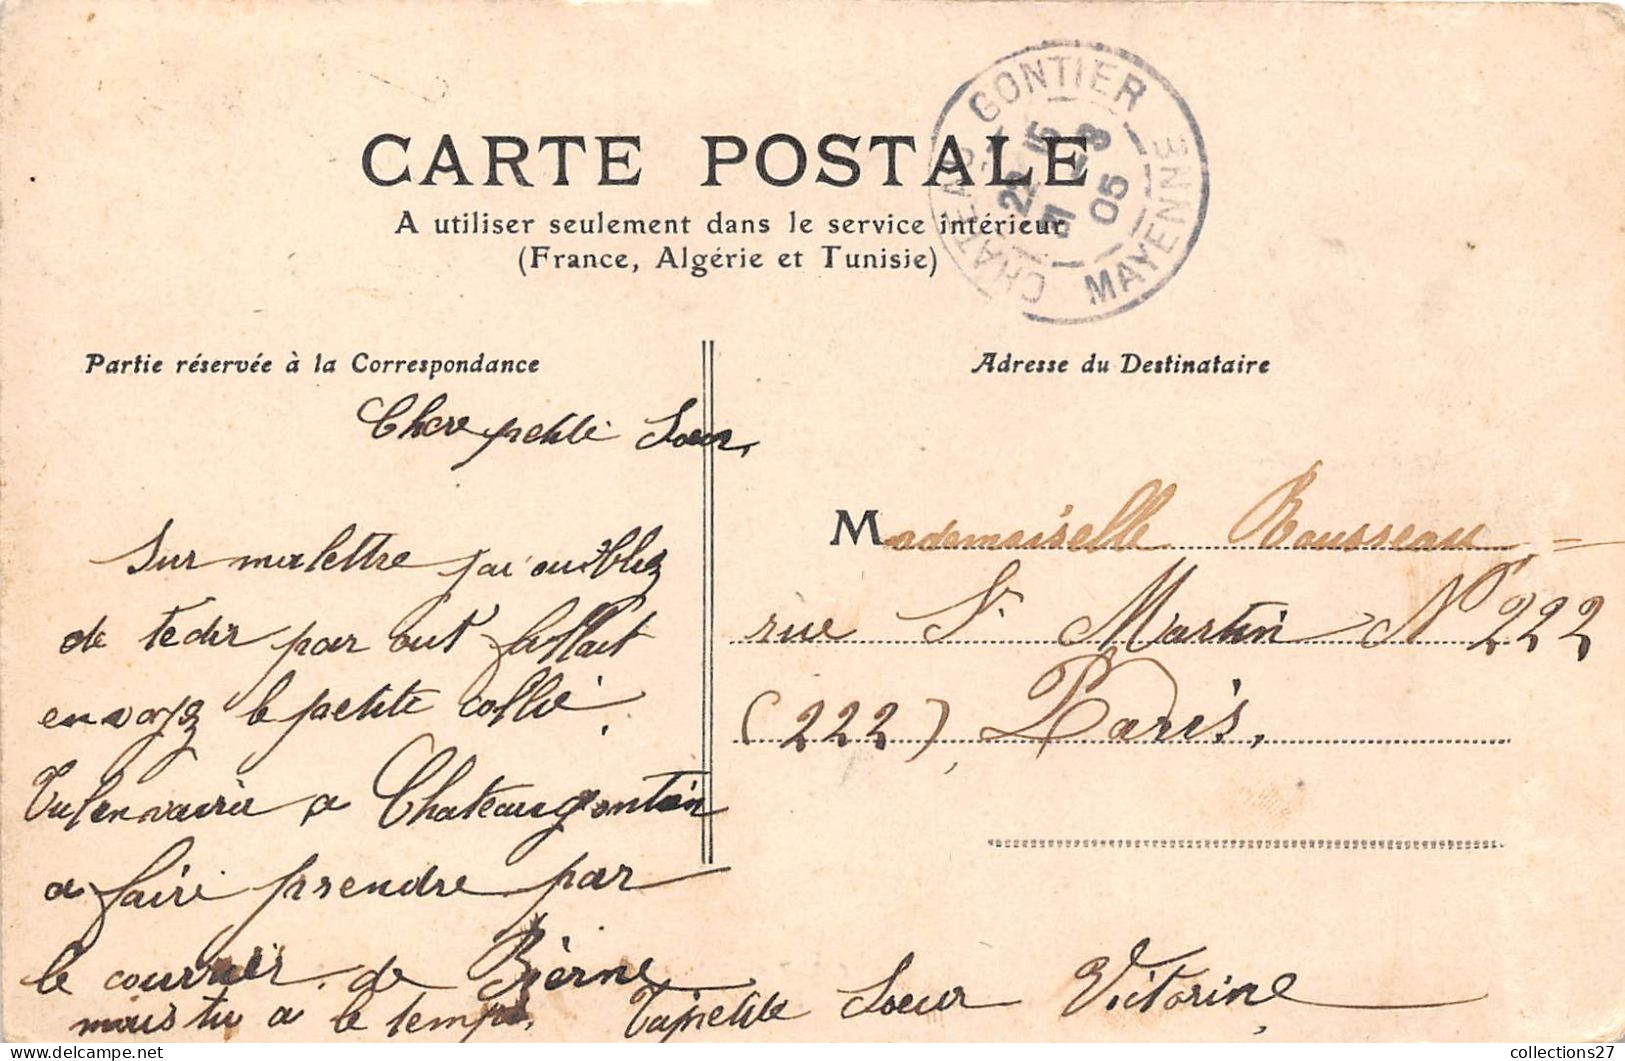 CARTE POSTALE
A utiliser seulement dans le service intérieur
(France, Algérie et Tunisie)
CHATEAU GONTIER
22 15
31 -8
05
MAYENNE
Partie réservée à la Correspondance
Chere petite Soeur,
Sur ma lettre jai oublez
de te dir par out fallait
envoyez le petite collie.
a Chateaugontin
a faire prendre par
le courrier de Bierne
mais tu a le temps. Ta petite Soeur Victorine
Adresse du Destinataire
Mademoiselle Rousseau
rue St. Martin No 222
(222) Paris.
collections27